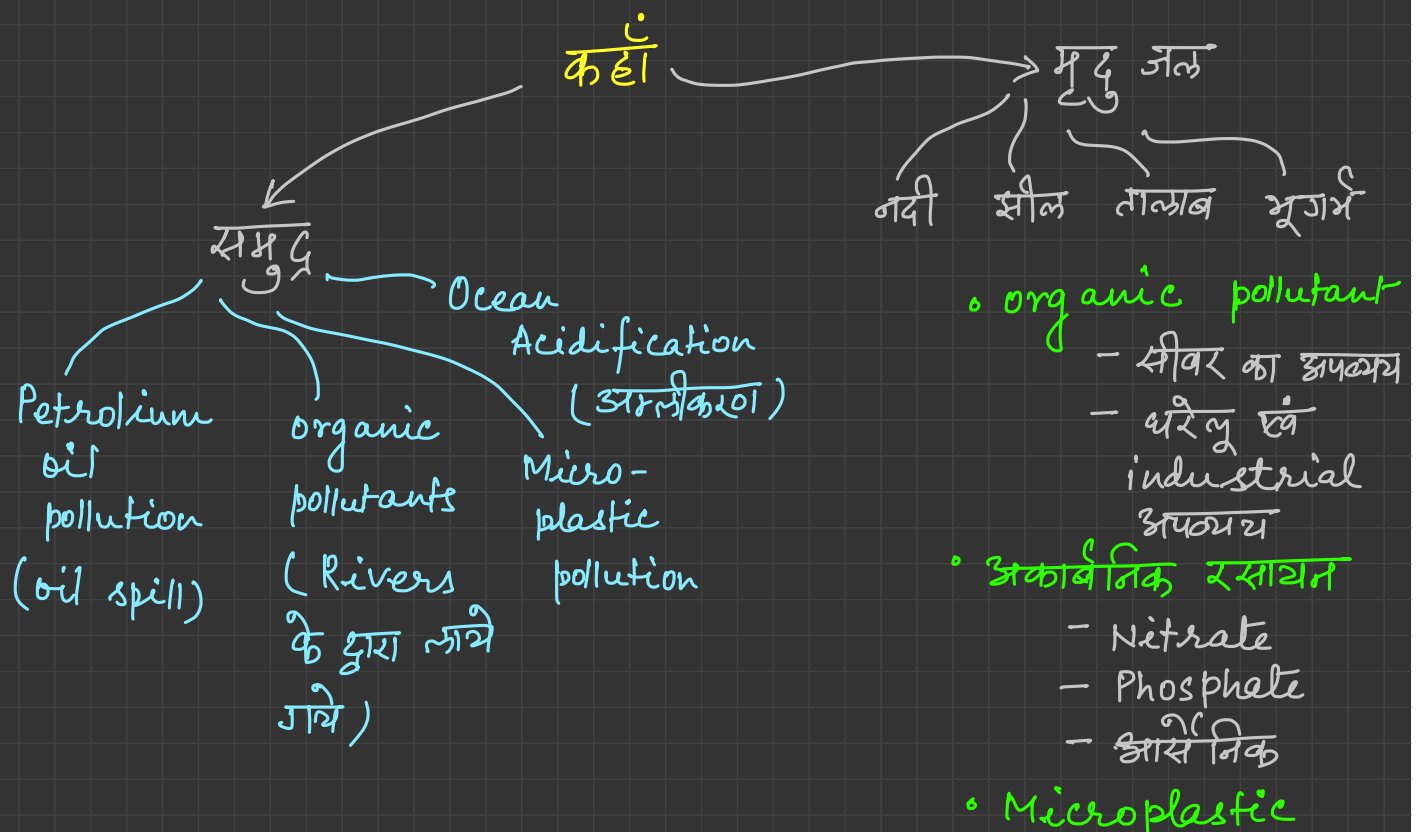 कहाँ
मृदु जल
नदी झील तालाब भूगर्भ
समुद्र
Ocean
Acidification
(अम्लीकरण)
Petrolium
oil
pollution
(oil spill)
organic
pollutants
(Rivers
के द्वारा लाये
गये)
Micro-
plastic
pollution
• organic pollutant
- सीवर का अपव्यय
- घरेलू एवं
industrial
अपव्यय
• अकार्बनिक रसायन
- Nitrate
- Phosphate
- आर्सेनिक
• Microplastic